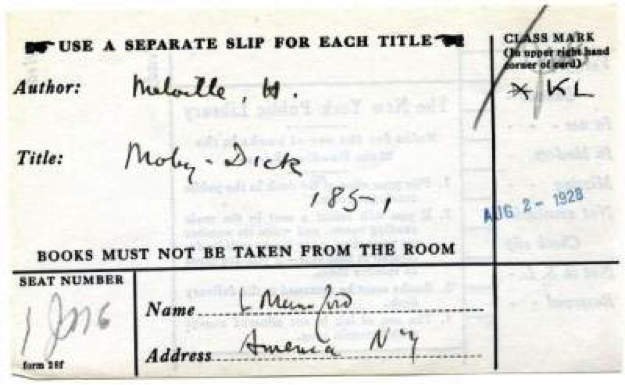 USE A SEPARATE SLIP FOR EACH TITLE
CLASS MARK
(In upper right hand
corner of card)
Author: Melville, H.
* KL
Title: Moby-Dick
1851
AUG 2 - 1928
BOOKS MUST NOT BE TAKEN FROM THE ROOM
SEAT NUMBER
Name L Mumford
Address Amenia NY
form 28f